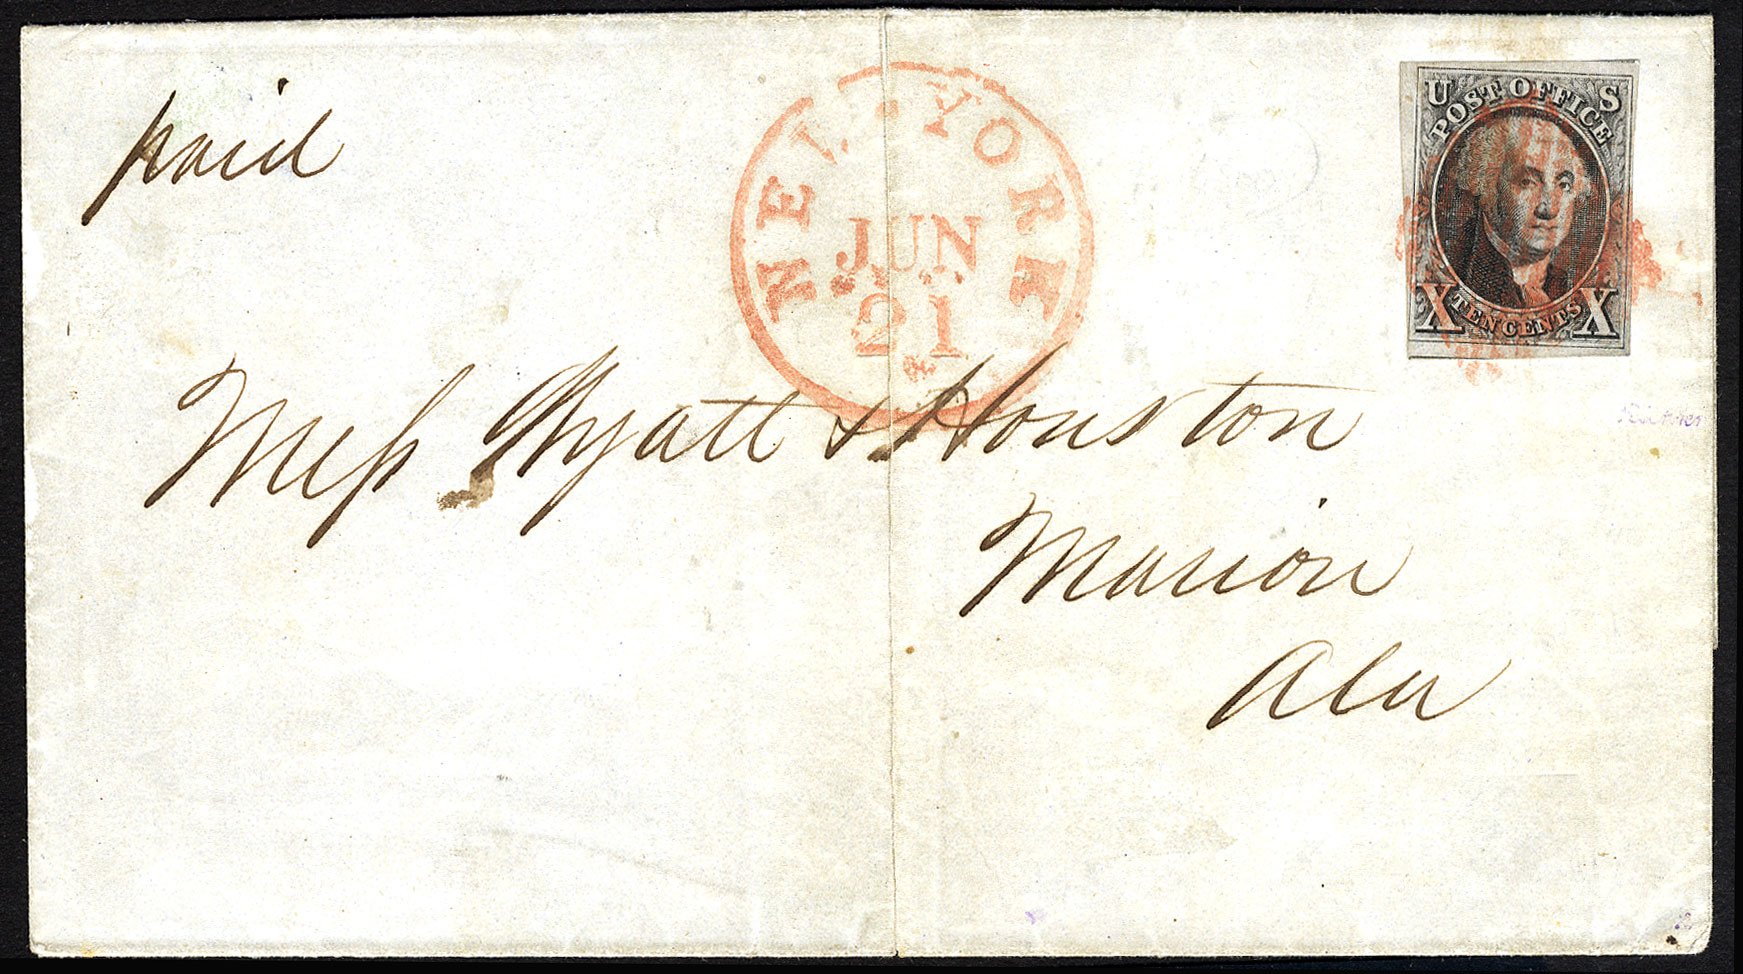 paid
NEW YORK
JUN
21
U S
POST OFFICE
X TEN CENTS X
Mess Wyatt & Houston
Marion
Ala